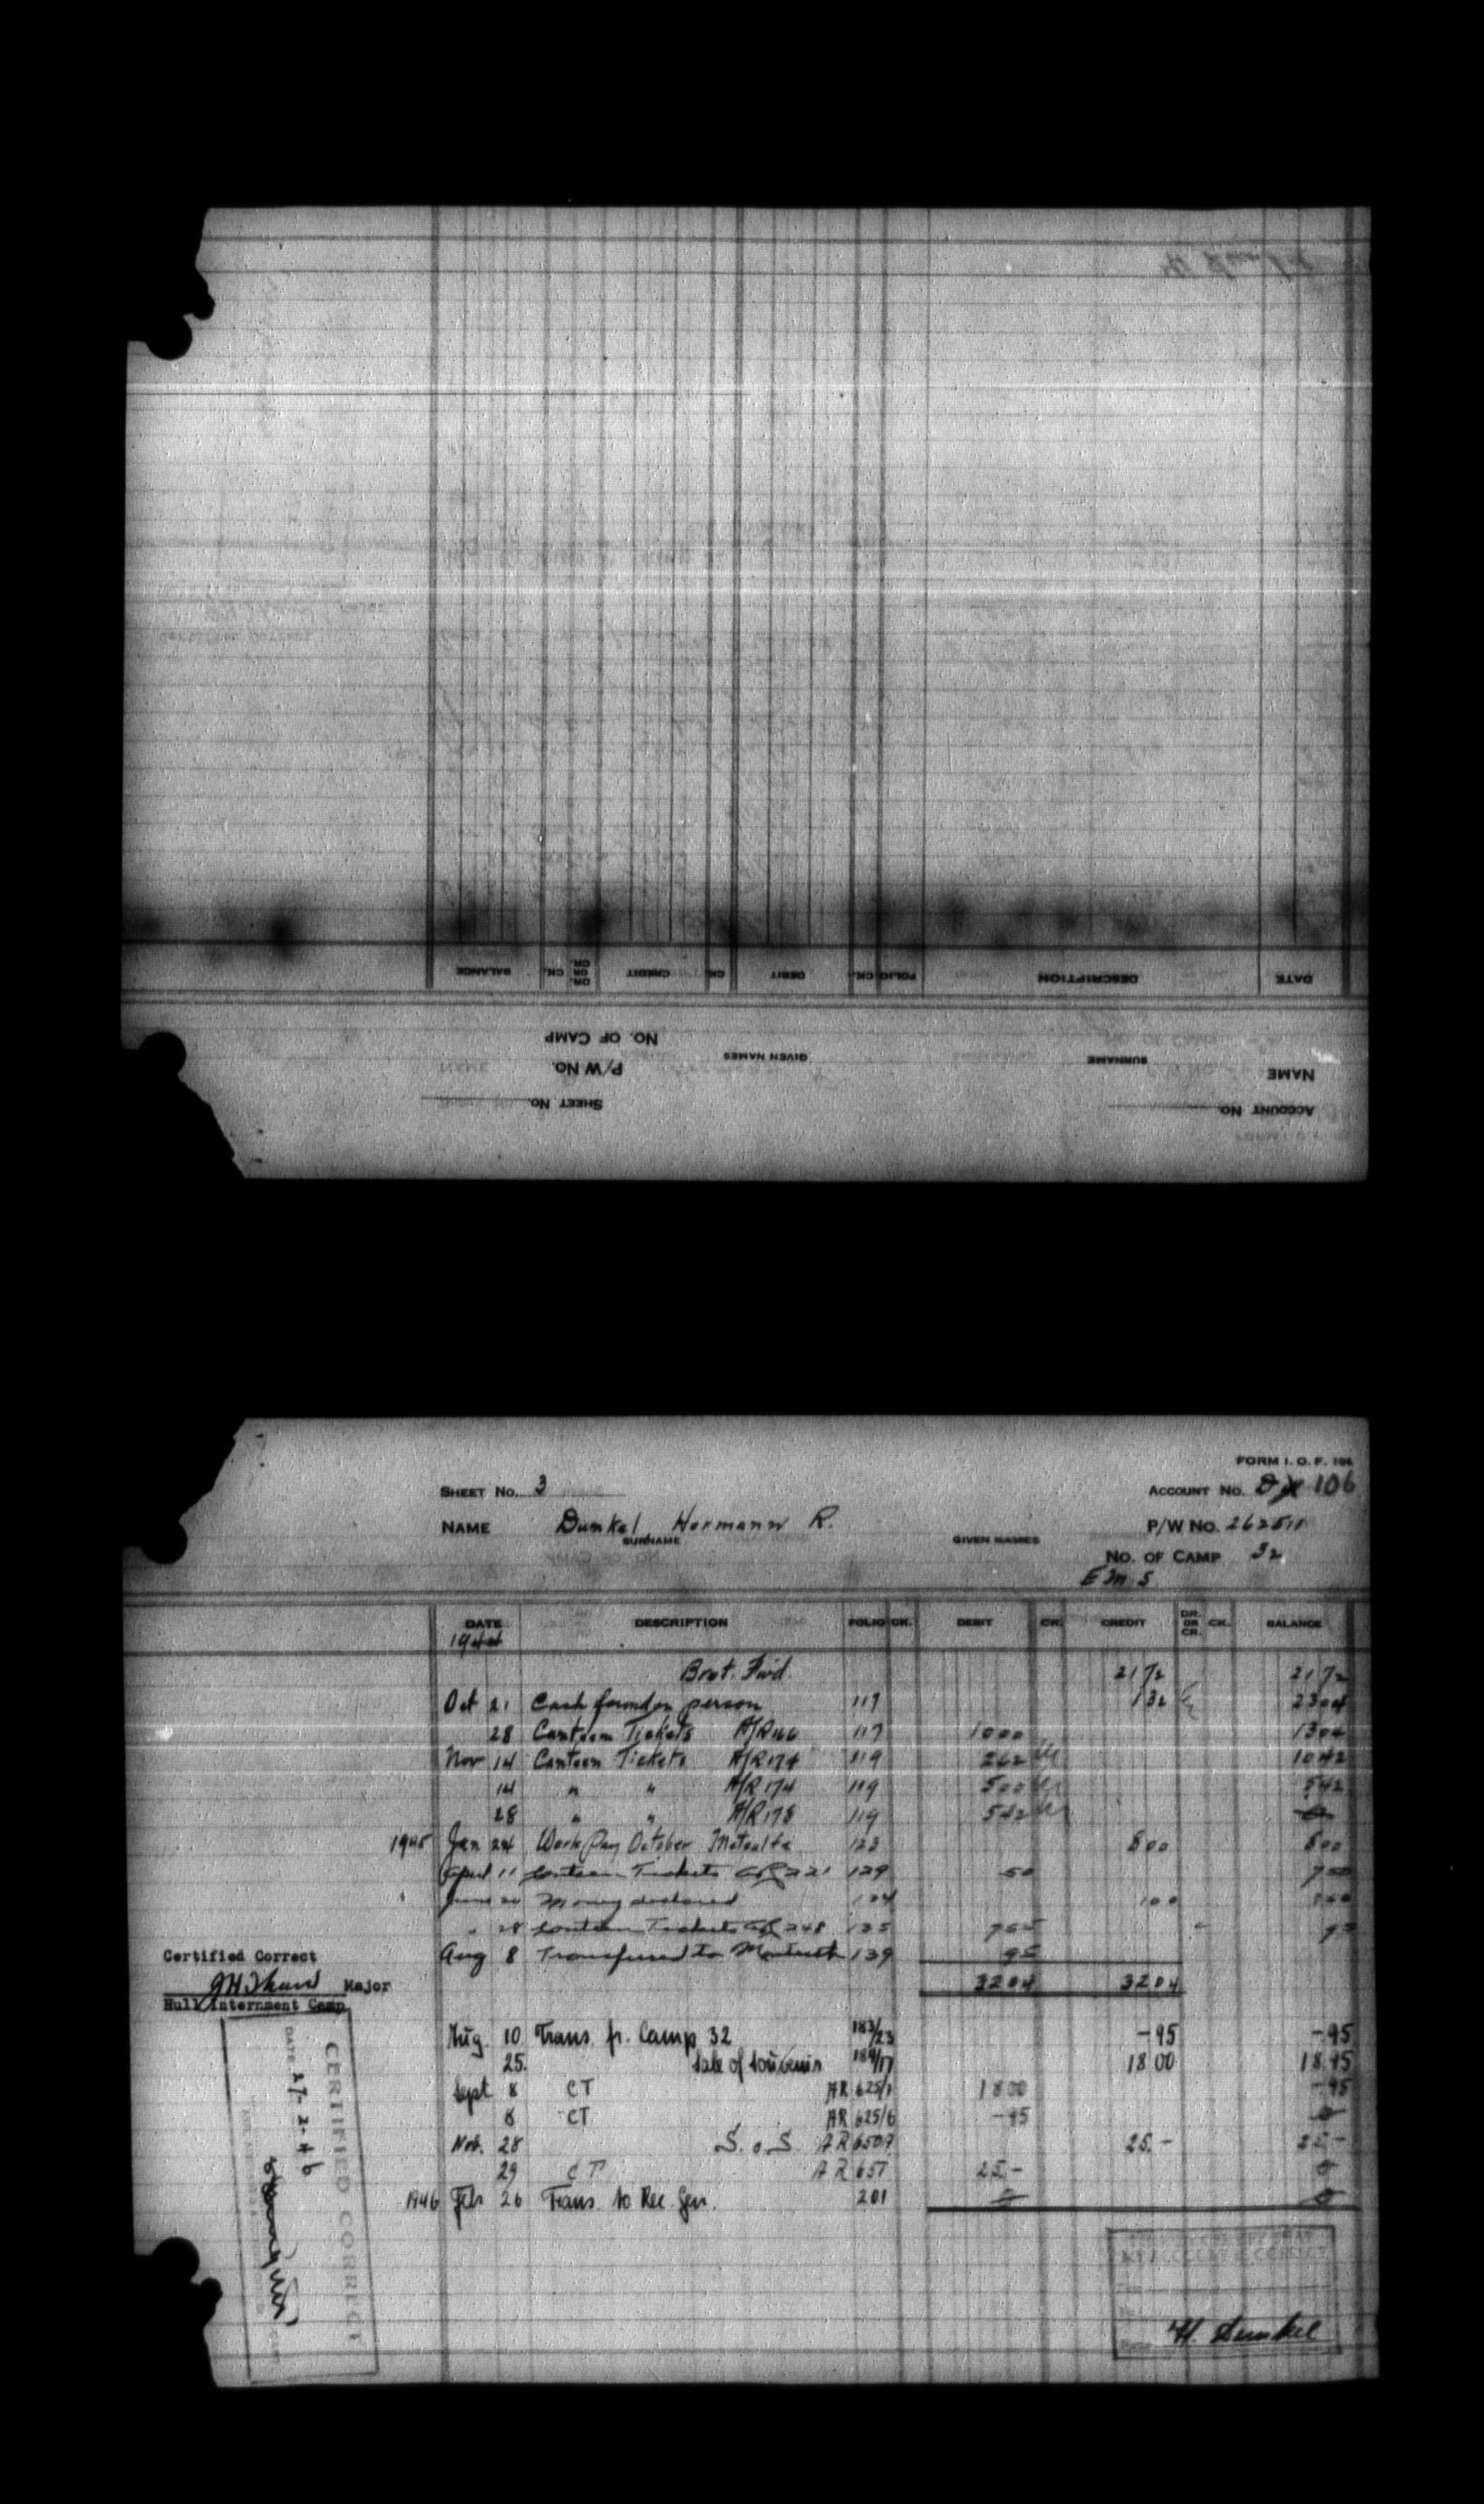 BALANCE CK. DR. OR CR. CREDIT CK. DEBIT CK. FOLIO DESCRIPTION DATE
NO. OF CAMP
P/W NO. GIVEN NAMES SURNAME NAME
SHEET NO. ACCOUNT NO.
FORM I. O. F. 106
SHEET NO. 3 ACCOUNT NO. 106
NAME Dunkel Hermann R. P/W NO.
SURNAME GIVEN NAMES
NO. OF CAMP 32
E M S
DATE DESCRIPTION FOLIO CK. DEBIT CK. CREDIT DR. OR CR. CK. BALANCE
1944
Brot. Fwd. 2172 2172
Oct 21 Cash found on person 117 132 2304
28 Canteen Tickets A/R 166 117 1000 1304
Nov 14 Canteen Tickets A/R 174 119 262 1042
14 " " A/R 174 119 500 542
28 " " A/R 178 119 542 0
1945 Jan 24 Work Pay October Metcalfe 123 800 800
April 11 Canteen Tickets 221 129 50 750
June 20 Money declared 134 100 850
" 28 Canteen Tickets 248 135 755 95
Aug 8 Transferred to 139 95
Certified Correct
Major
Hull Internment Camp
3204 3204
Aug. 10 Trans. fr. Camp 32 183/23 -95 -95
25. Sale of Souvenir 184/17 18 00 18.95
Sept 8 CT AR 625/1 18 00 -95
8 CT AR 625/6 -95 0
Nov. 28 S. o. S. AR 25.- 25-
29 CT AR 657 25.- 0
1946 Feb 26 Trans. to Rec. Gen. 201 0 0
CERTIFIED CORRECT
DATE 27-2-46
H. Dunkel